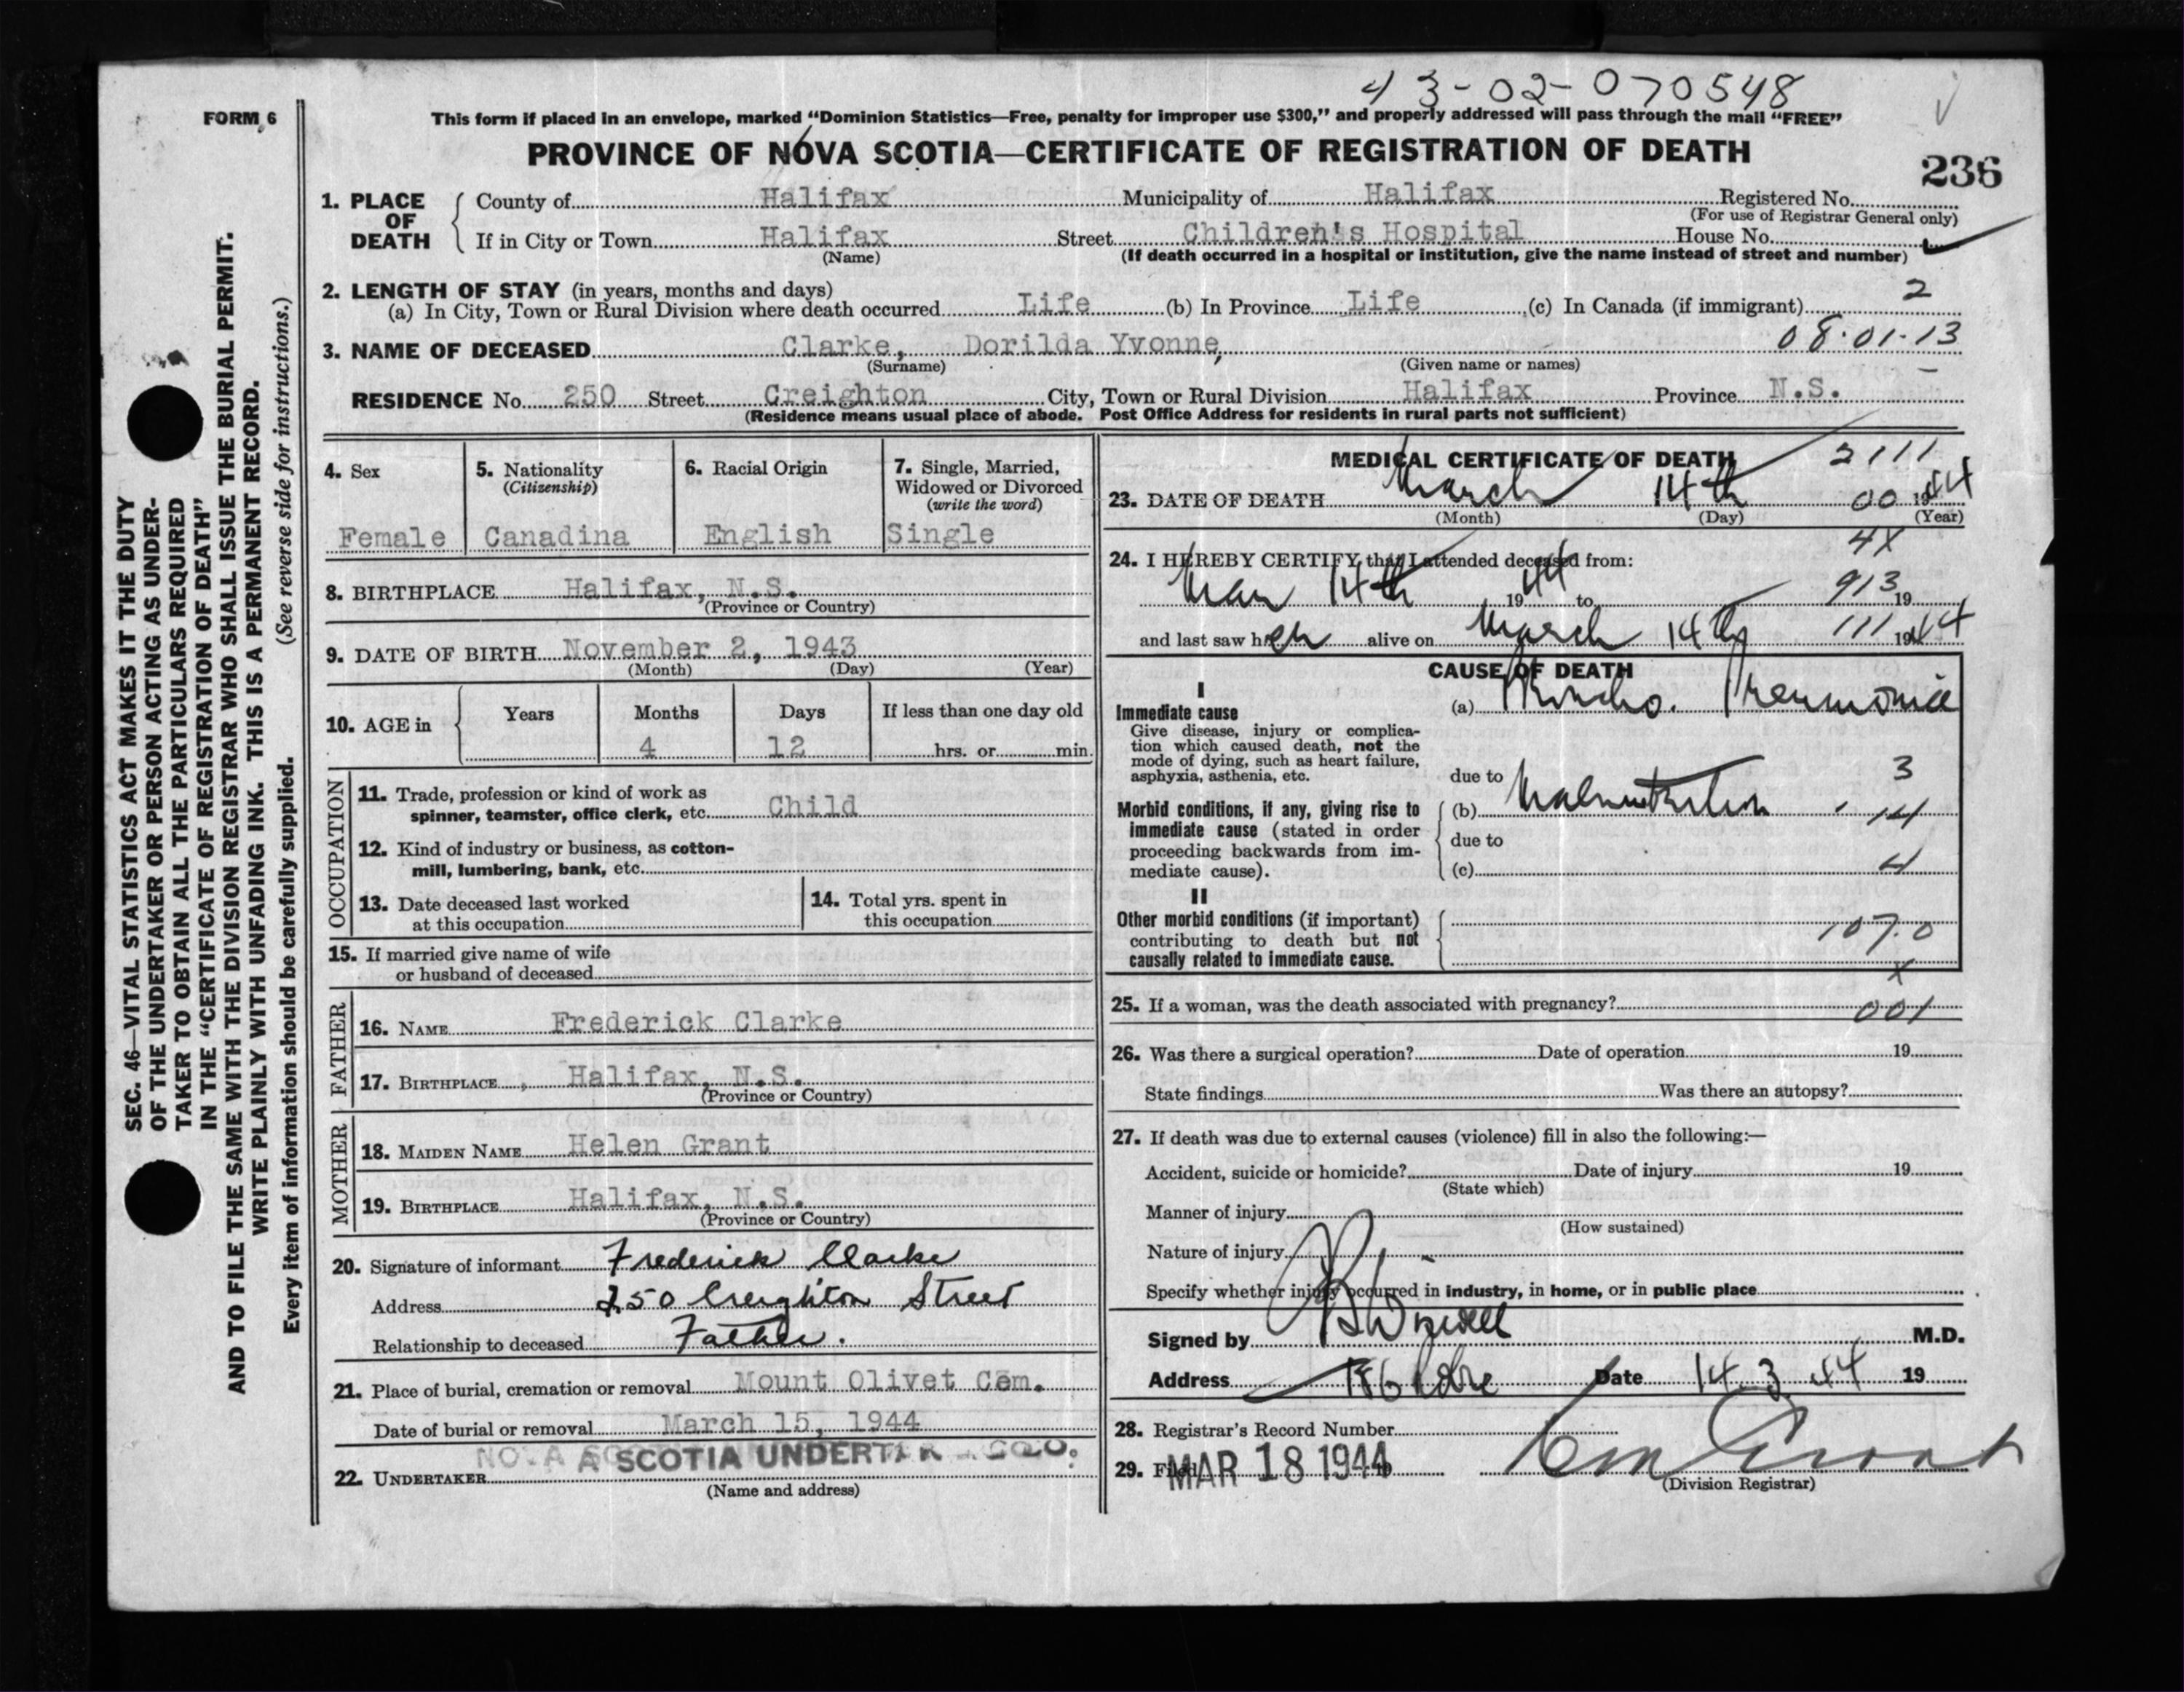 43-02-070548
FORM 6
This form if placed in an envelope, marked “Dominion Statistics—Free, penalty for improper use $300,” and properly addressed will pass through the mail “FREE”
PROVINCE OF NOVA SCOTIA—CERTIFICATE OF REGISTRATION OF DEATH
236
1. PLACE OF DEATH
County of Halifax Municipality of Halifax Registered No.
(For use of Registrar General only)
If in City or Town Halifax Street Children's Hospital House No.
(Name) (If death occurred in a hospital or institution, give the name instead of street and number)
2. LENGTH OF STAY (in years, months and days)
(a) In City, Town or Rural Division where death occurred Life (b) In Province Life (c) In Canada (if immigrant) 2
3. NAME OF DECEASED Clarke, Dorilda Yvonne, 08·01-13
(Surname) (Given name or names)
RESIDENCE No. 250 Street Creighton City, Town or Rural Division Halifax Province N.S.
(Residence means usual place of abode. Post Office Address for residents in rural parts not sufficient)
SEC. 46—VITAL STATISTICS ACT MAKES IT THE DUTY
OF THE UNDERTAKER OR PERSON ACTING AS UNDER-
TAKER TO OBTAIN ALL THE PARTICULARS REQUIRED
IN THE “CERTIFICATE OF REGISTRATION OF DEATH”
AND TO FILE THE SAME WITH THE DIVISION REGISTRAR WHO SHALL ISSUE THE BURIAL PERMIT.
WRITE PLAINLY WITH UNFADING INK. THIS IS A PERMANENT RECORD.
Every item of information should be carefully supplied. (See reverse side for instructions.)
4. Sex
Female
5. Nationality
(Citizenship)
Canadina
6. Racial Origin
English
7. Single, Married,
Widowed or Divorced
(write the word)
Single
8. BIRTHPLACE Halifax, N.S.
(Province or Country)
9. DATE OF BIRTH November 2, 1943
(Month) (Day) (Year)
10. AGE in Years Months Days If less than one day old
4 12 hrs. or min.
OCCUPATION
11. Trade, profession or kind of work as
spinner, teamster, office clerk, etc. Child
12. Kind of industry or business, as cotton-
mill, lumbering, bank, etc.
13. Date deceased last worked
at this occupation
14. Total yrs. spent in
this occupation
15. If married give name of wife
or husband of deceased
FATHER
16. NAME Frederick Clarke
17. BIRTHPLACE Halifax, N.S.
(Province or Country)
MOTHER
18. MAIDEN NAME Helen Grant
19. BIRTHPLACE Halifax, N.S.
(Province or Country)
20. Signature of informant Frederick Clarke
Address 250 Creighton Street
Relationship to deceased Father.
21. Place of burial, cremation or removal Mount Olivet Cem.
Date of burial or removal March 15, 1944
22. UNDERTAKER NOVA SCOTIA UNDERTAK CO.
(Name and address)
MEDICAL CERTIFICATE OF DEATH 2111
23. DATE OF DEATH March 14th 00 1944
(Month) (Day) (Year)
4X
24. I HEREBY CERTIFY, that I attended deceased from:
Mar 14th 1944 to 913 19
and last saw her alive on March 14th 111 1944
CAUSE OF DEATH
I
Immediate cause
Give disease, injury or complica-
tion which caused death, not the
mode of dying, such as heart failure,
asphyxia, asthenia, etc.
(a) Broncho. Pneumonia
due to 3
Morbid conditions, if any, giving rise to
immediate cause (stated in order
proceeding backwards from im-
mediate cause).
(b) Malnutrition 14
due to
(c) 4
II
Other morbid conditions (if important)
contributing to death but not
causally related to immediate cause.
107.0
X
25. If a woman, was the death associated with pregnancy? 001
26. Was there a surgical operation? Date of operation 19
State findings Was there an autopsy?
27. If death was due to external causes (violence) fill in also the following:—
Accident, suicide or homicide? Date of injury 19
(State which)
Manner of injury
(How sustained)
Nature of injury
Specify whether injury occurred in industry, in home, or in public place
Signed by M.D.
Address Date 14.3.44 19
28. Registrar's Record Number
29. Filed MAR 18 1944
(Division Registrar)